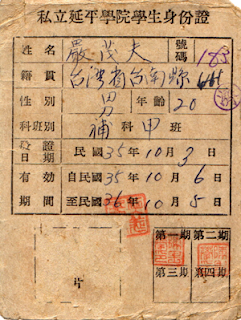 私立延平學院學生身份證
姓名 嚴茂夫 號碼 183
籍貫 台灣省台南縣
性別 男 年齡 20
科班別 補科甲班
發證日期 民國35年10月3日
有效期間 自民國35年10月6日
至民國36年10月5日
第一期 第二期
片
第三期 第四期